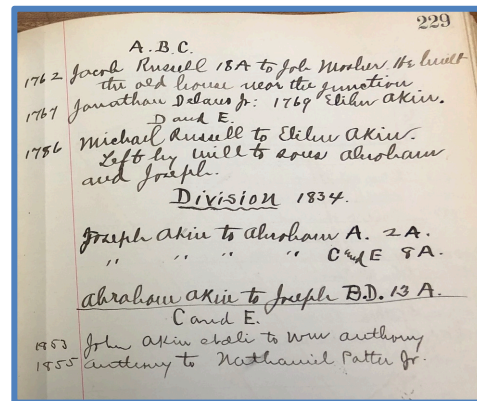 229
A.B.C.
1762 Jacob Russell 18A to Job Mosher. He built
the old house near the junction
1767 Jonathan Delano Jr: 1769 Elihu Akin.
D and E.
1786 Michael Russell to Elihu Akin.
Left by will to sons Abraham
and Joseph.
Division 1834.
Joseph Akin to Abraham A. 2 A.
" " " " C and E 8 A.
Abraham Akin to Joseph B.D. 13 A.
C and E.
1853 John Akin to Wm Anthony
1855 Anthony to Nathaniel Potter Jr.